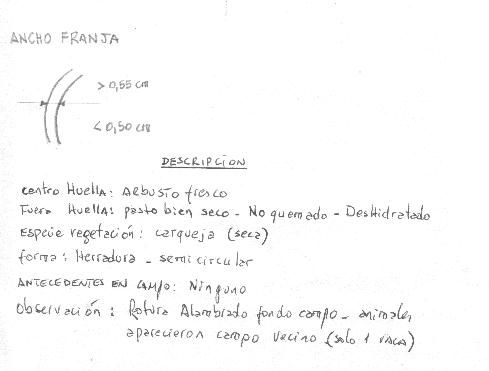 ANCHO FRANJA
> 0,55 cm
< 0,50 cm
DESCRIPCION
centro Huella: ARbusto fresco
Fuera Huella: pasto bien seco - No quemado - DesHidratado
Especie vegetación: carqueja (seca)
forma: Herradura - semicircular
ANTECEDENTES EN CAMPO: Ninguno
Observación: Rotura Alambrado fondo campo - animales
aparecieron campo vecino (solo 1 VACA)